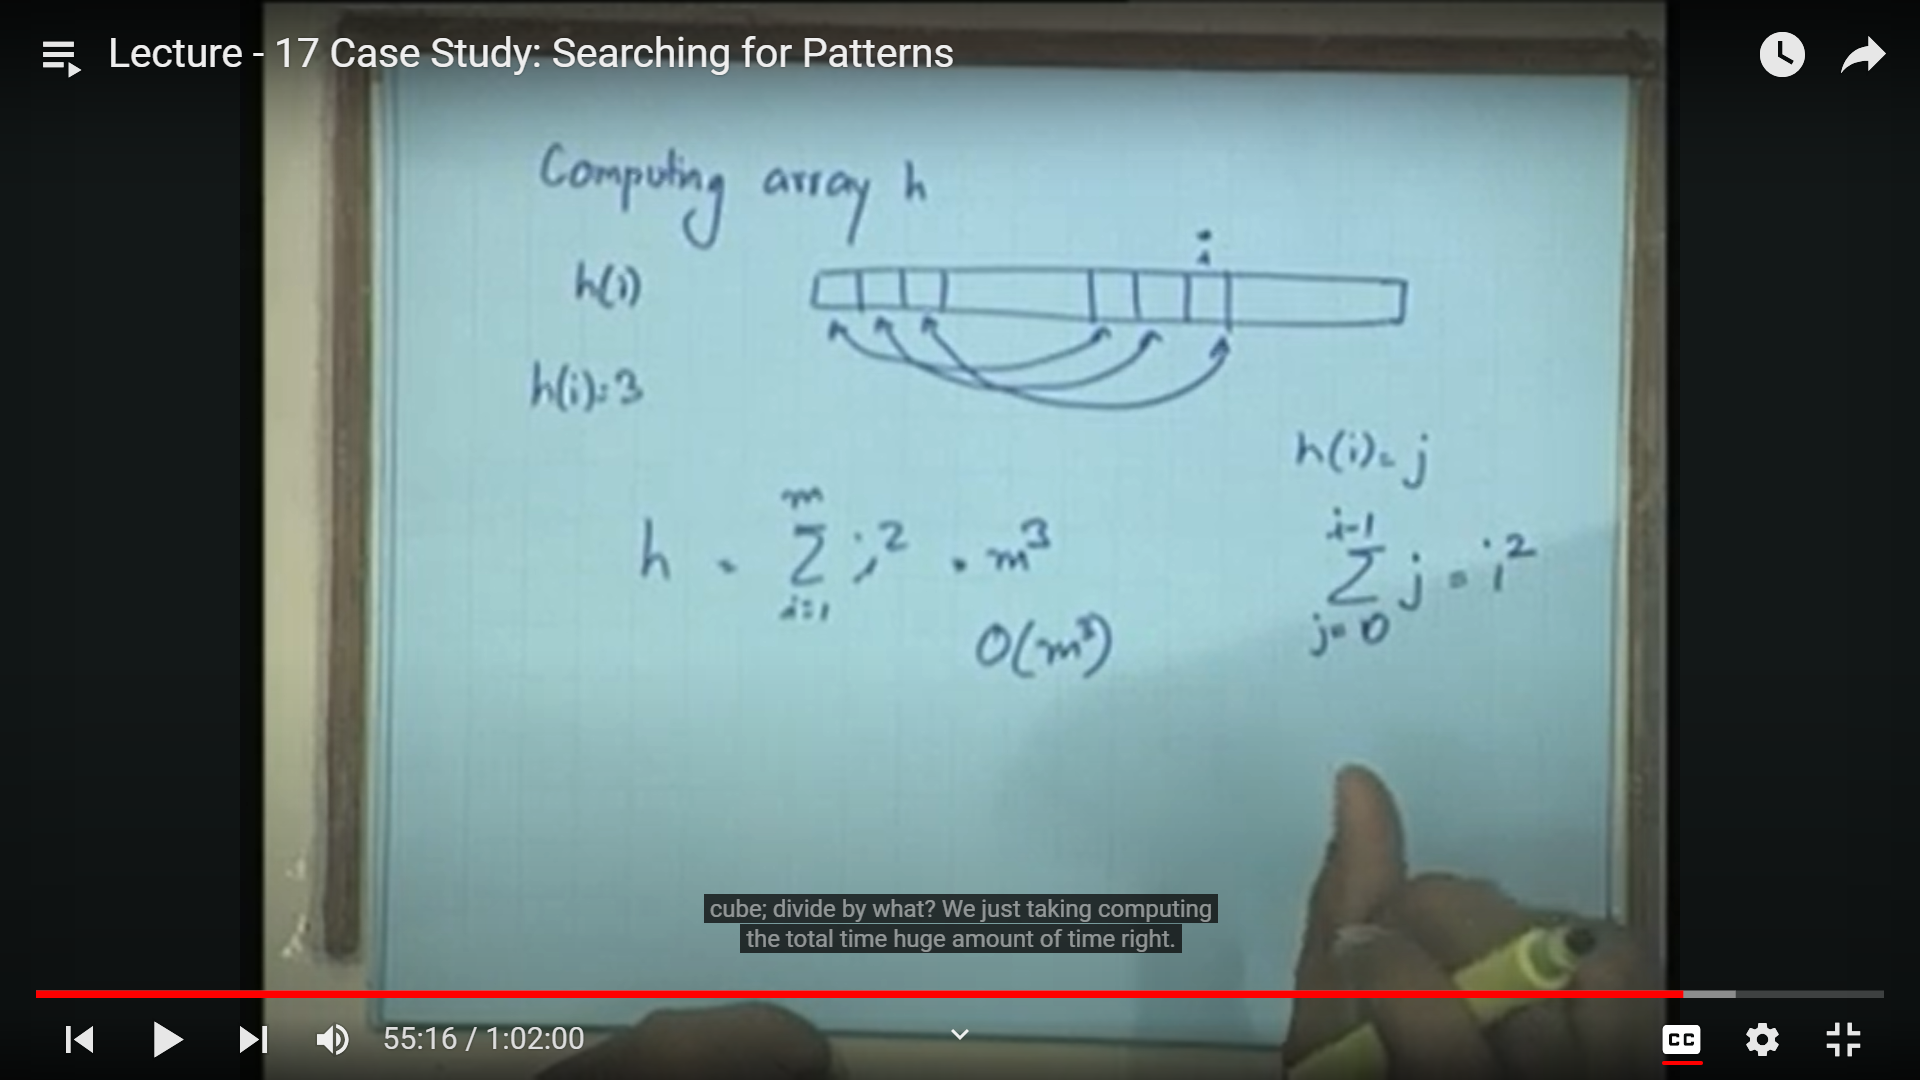 Lecture - 17 Case Study: Searching for Patterns
Computing array h
i
h(i)
h(i)=3
h(i)= j
m
h = Σ i² = m³
i=1
i-1
Σ j = i²
j=0
O(m³)
cube; divide by what? We just taking computing
the total time huge amount of time right.
55:16 / 1:02:00
CC